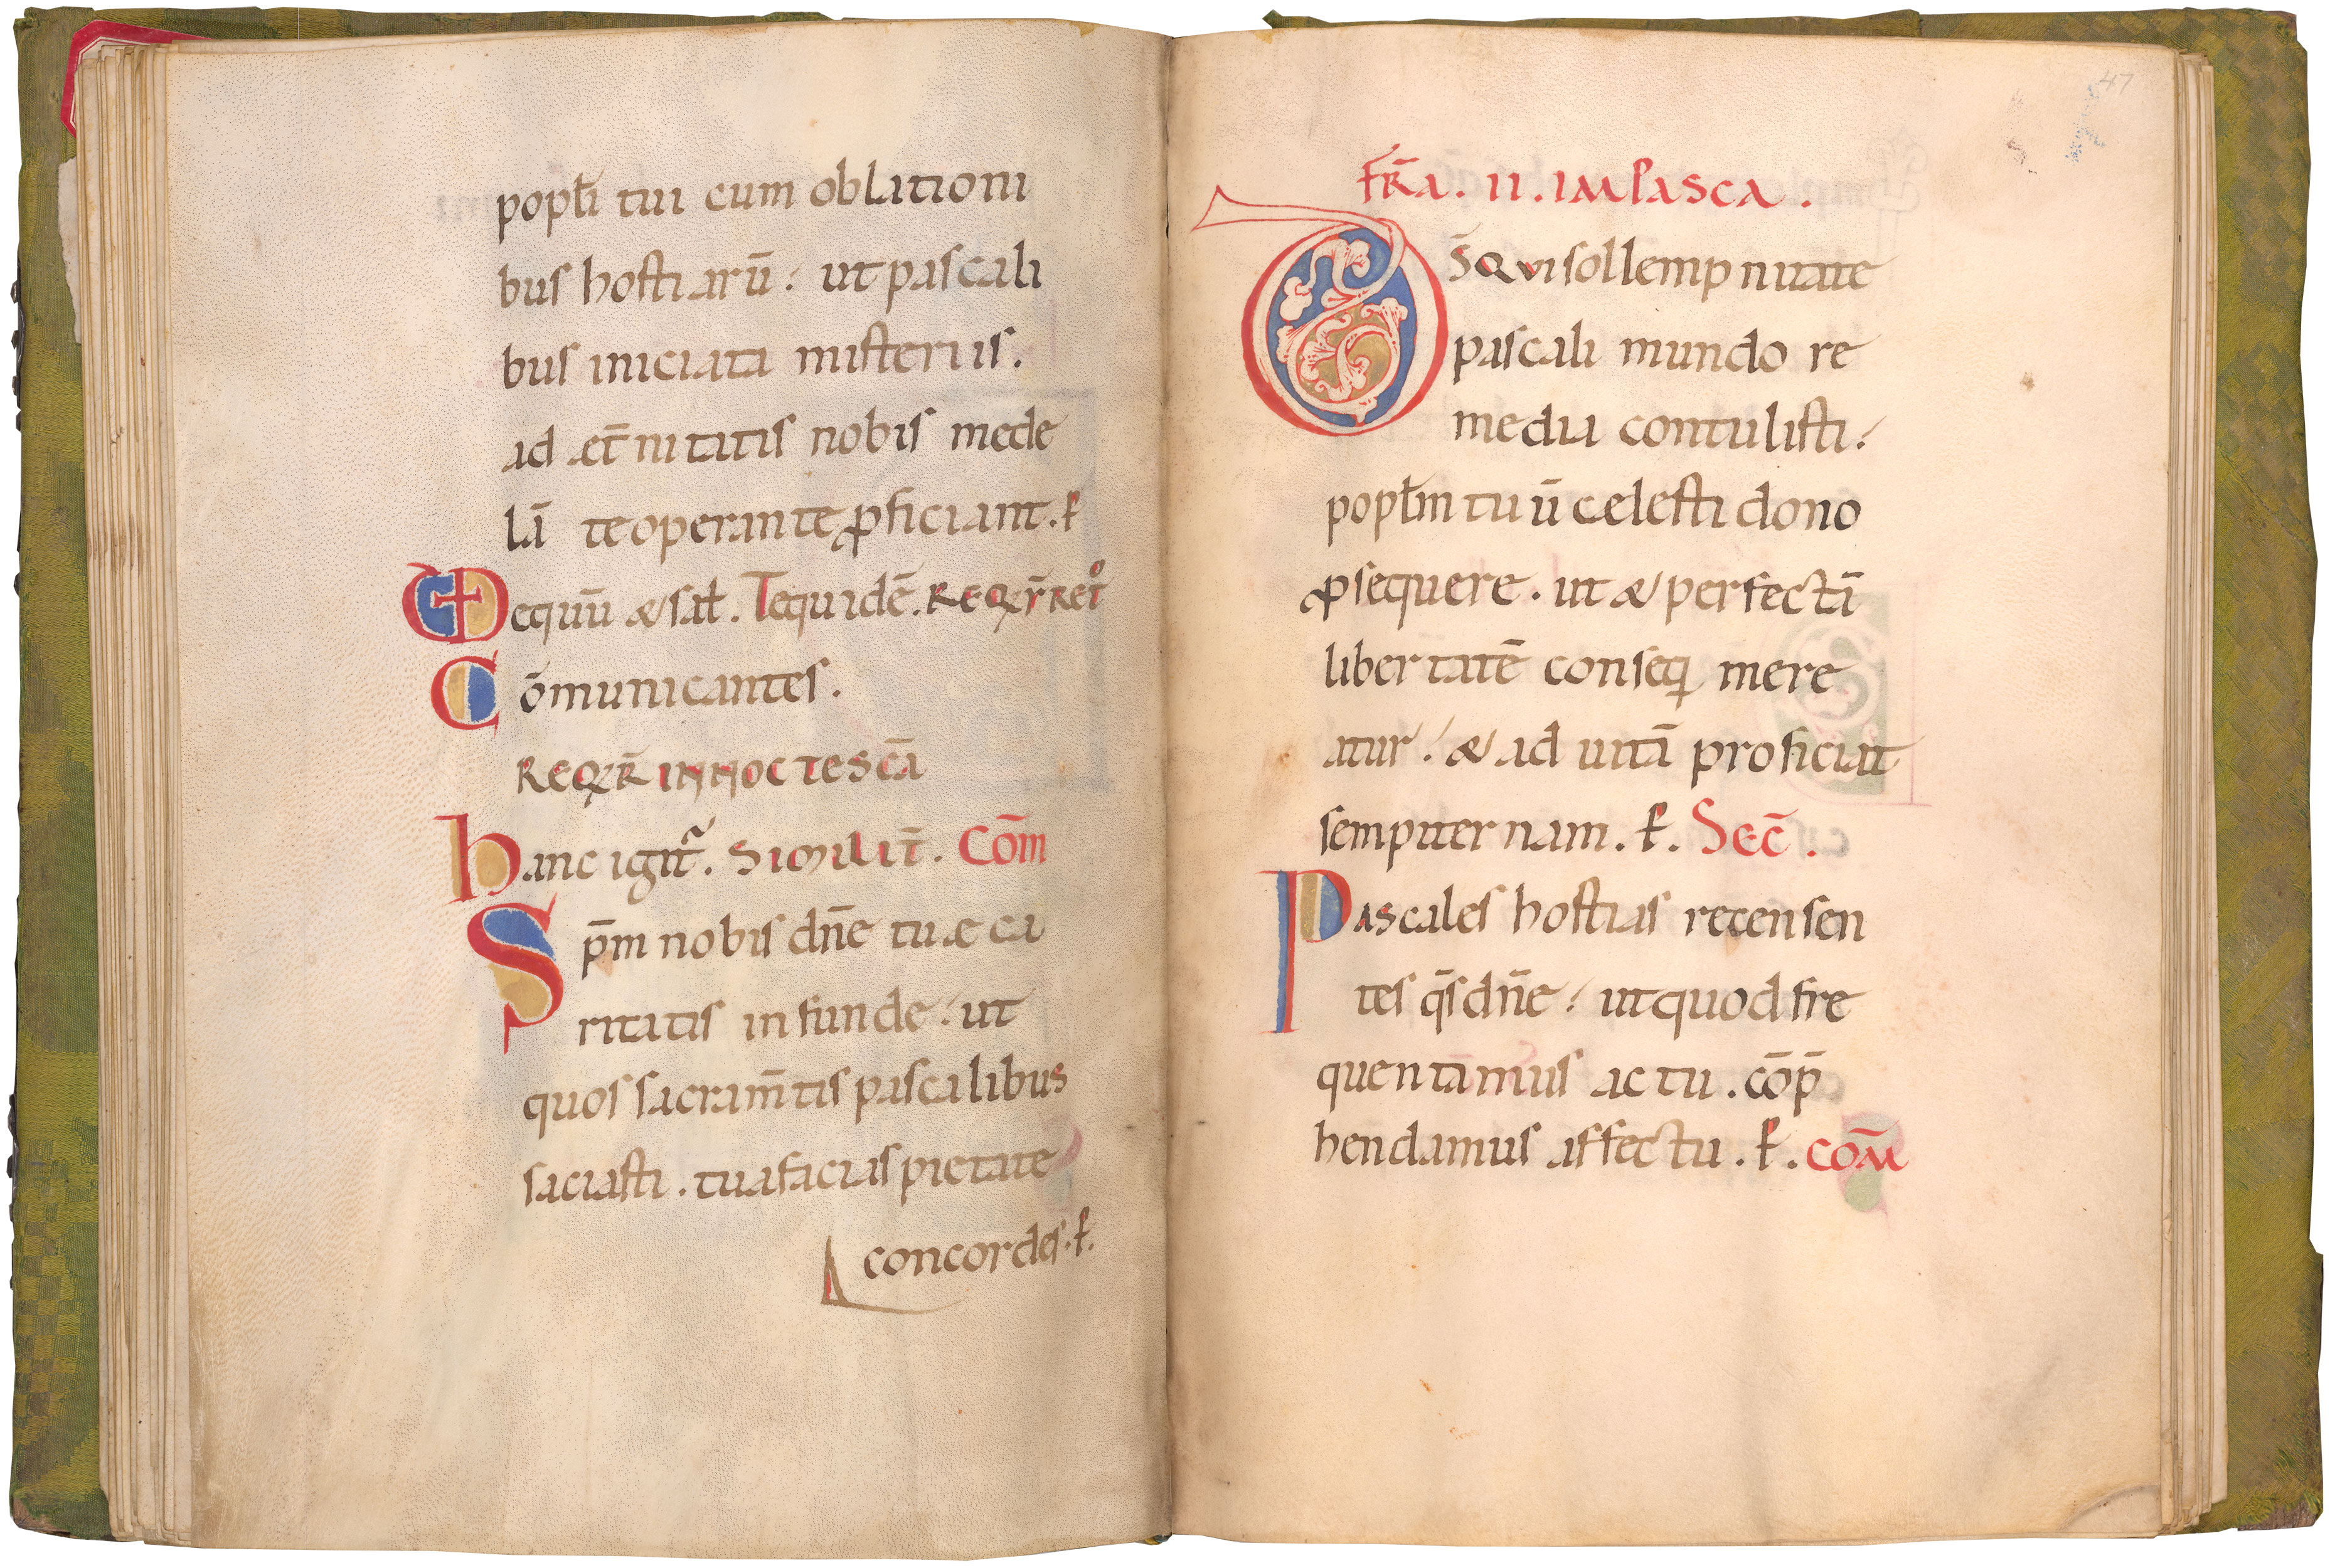 popƚi tui cum oblationi
bus hostiarū· ut pascali
bus iniciata misteriis.
ad æt̄nitatis nobis mede
lā te operante ꝓficiant. ꝑ
equū & sał. Te quidē. REQR̄ RET°
Cōmunicantes.
REQR̄ IN NOCTE SCĀ
hanc igit̃. SIMILIT̄. Cōm
Sp̄m nobis dn̄e tuæ ca
ritatis infunde· ut
quos sacram̄tis pascalibus
saciasti. tua facias pietate
concordes. ꝑ.
47
FR̄A. II. IM PASCA.
DS̄ QVI sollempnitate
pascali mundo re
media contulisti·
popƚm tuū celesti dono
ꝓsequere. ut & perfectā
libertatē conseq̄ mere
atur· & ad uitā proficiat
sempiternam. ꝑ. Sec̄.
Pascales hostias recensen
tes q̄s dn̄e· ut quod fre
quentāmus actu. cōp̄
hendamus affectu. ꝑ. COM̄